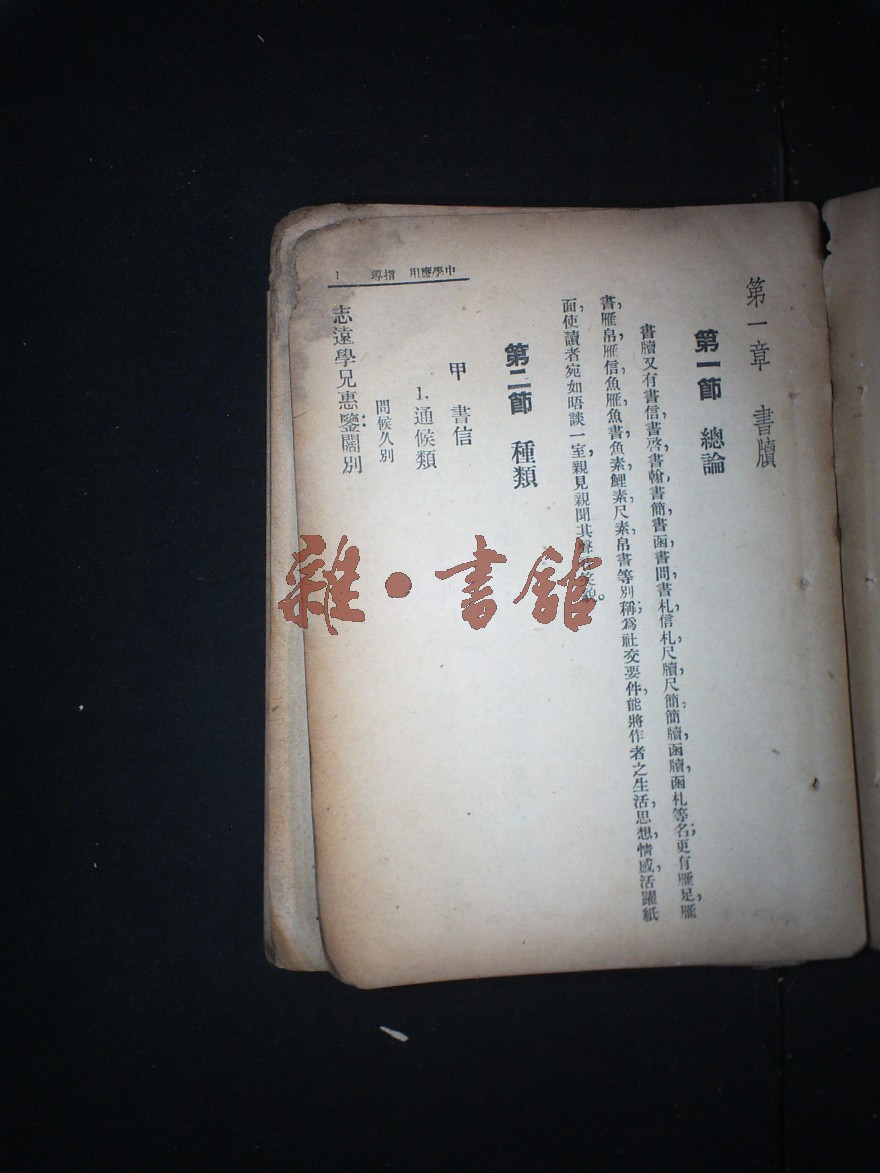 第一章　書牘
第一節　總論
書牘又有書信，書啓，書翰，書簡，書函，書問，書札，信札，尺牘，尺簡，簡牘，函牘，函札等名；更有雁足，雁
書，雁帛，雁信，魚雁，魚書，魚素，鯉素，尺素，帛書等別稱；爲社交要件，能將作者之生活，思想，情感，活躍紙
面，使讀者宛如晤談一室，親見親聞其聲
第二節　種類
甲　書信
1. 通候類
問候久別
志遠學兄惠鑒：闊別
中學應用　指導　1
雜·書館